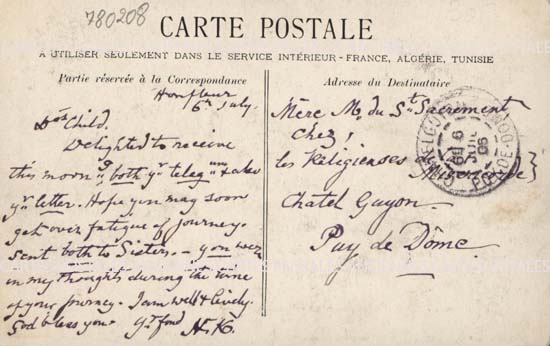 780208
CARTE POSTALE
A UTILISER SEULEMENT DANS LE SERVICE INTÉRIEUR - FRANCE, ALGÉRIE, TUNISIE
Partie réservée à la Correspondance
Honfleur
6th July.
Drst Child,
Delighted to receive
this morng. both yr. teleg
yr letter. Hope you may soon
get over fatigue of journey.
Sent both to Sister. - you were
in my thoughts during the time
of your journey. I am well & lively.
God bless you. Yr. fond H.K.
Adresse du Destinataire
Mère M. du St. Sacrement
chez,
les Religieuses
Chatel Guyon.
Puy de Dôme.
6
JUIL
05
PUY-DE-DOME